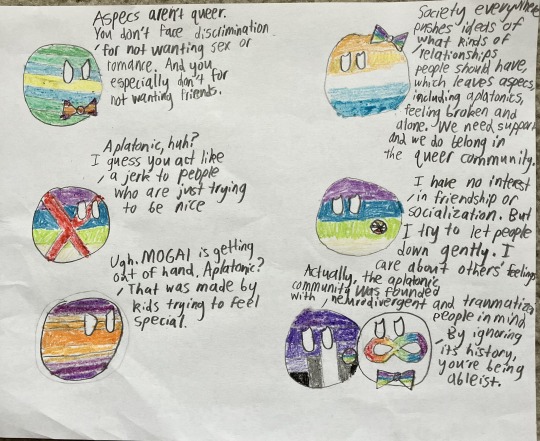 Aspecs aren't queer.
You don't face discrimination
for not wanting sex or
romance. And you
especially don't for
not wanting friends.
Society everywhere
pushes ideas of
what kinds of
relationships
people should have,
which leaves aspecs,
including aplatonics,
feeling broken and
alone. We need support
and we do belong in
the queer community.
Aplatonic, huh?
I guess you act like
a jerk to people
who are just trying
to be nice
I have no interest
in friendship or
socialization. But
I try to let people
down gently. I
care about others' feelings
Ugh. MOGAI is getting
out of hand, Aplatonic?
That was made by
kids trying to feel
special.
Actually, the aplatonic
community was founded
with neurodivergent and traumatized
people in mind
By ignoring
its history,
you're being
ableist.